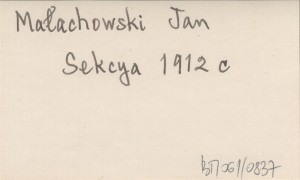 Małachowski Jan
Sekcya 1912 c
BT/061/0837